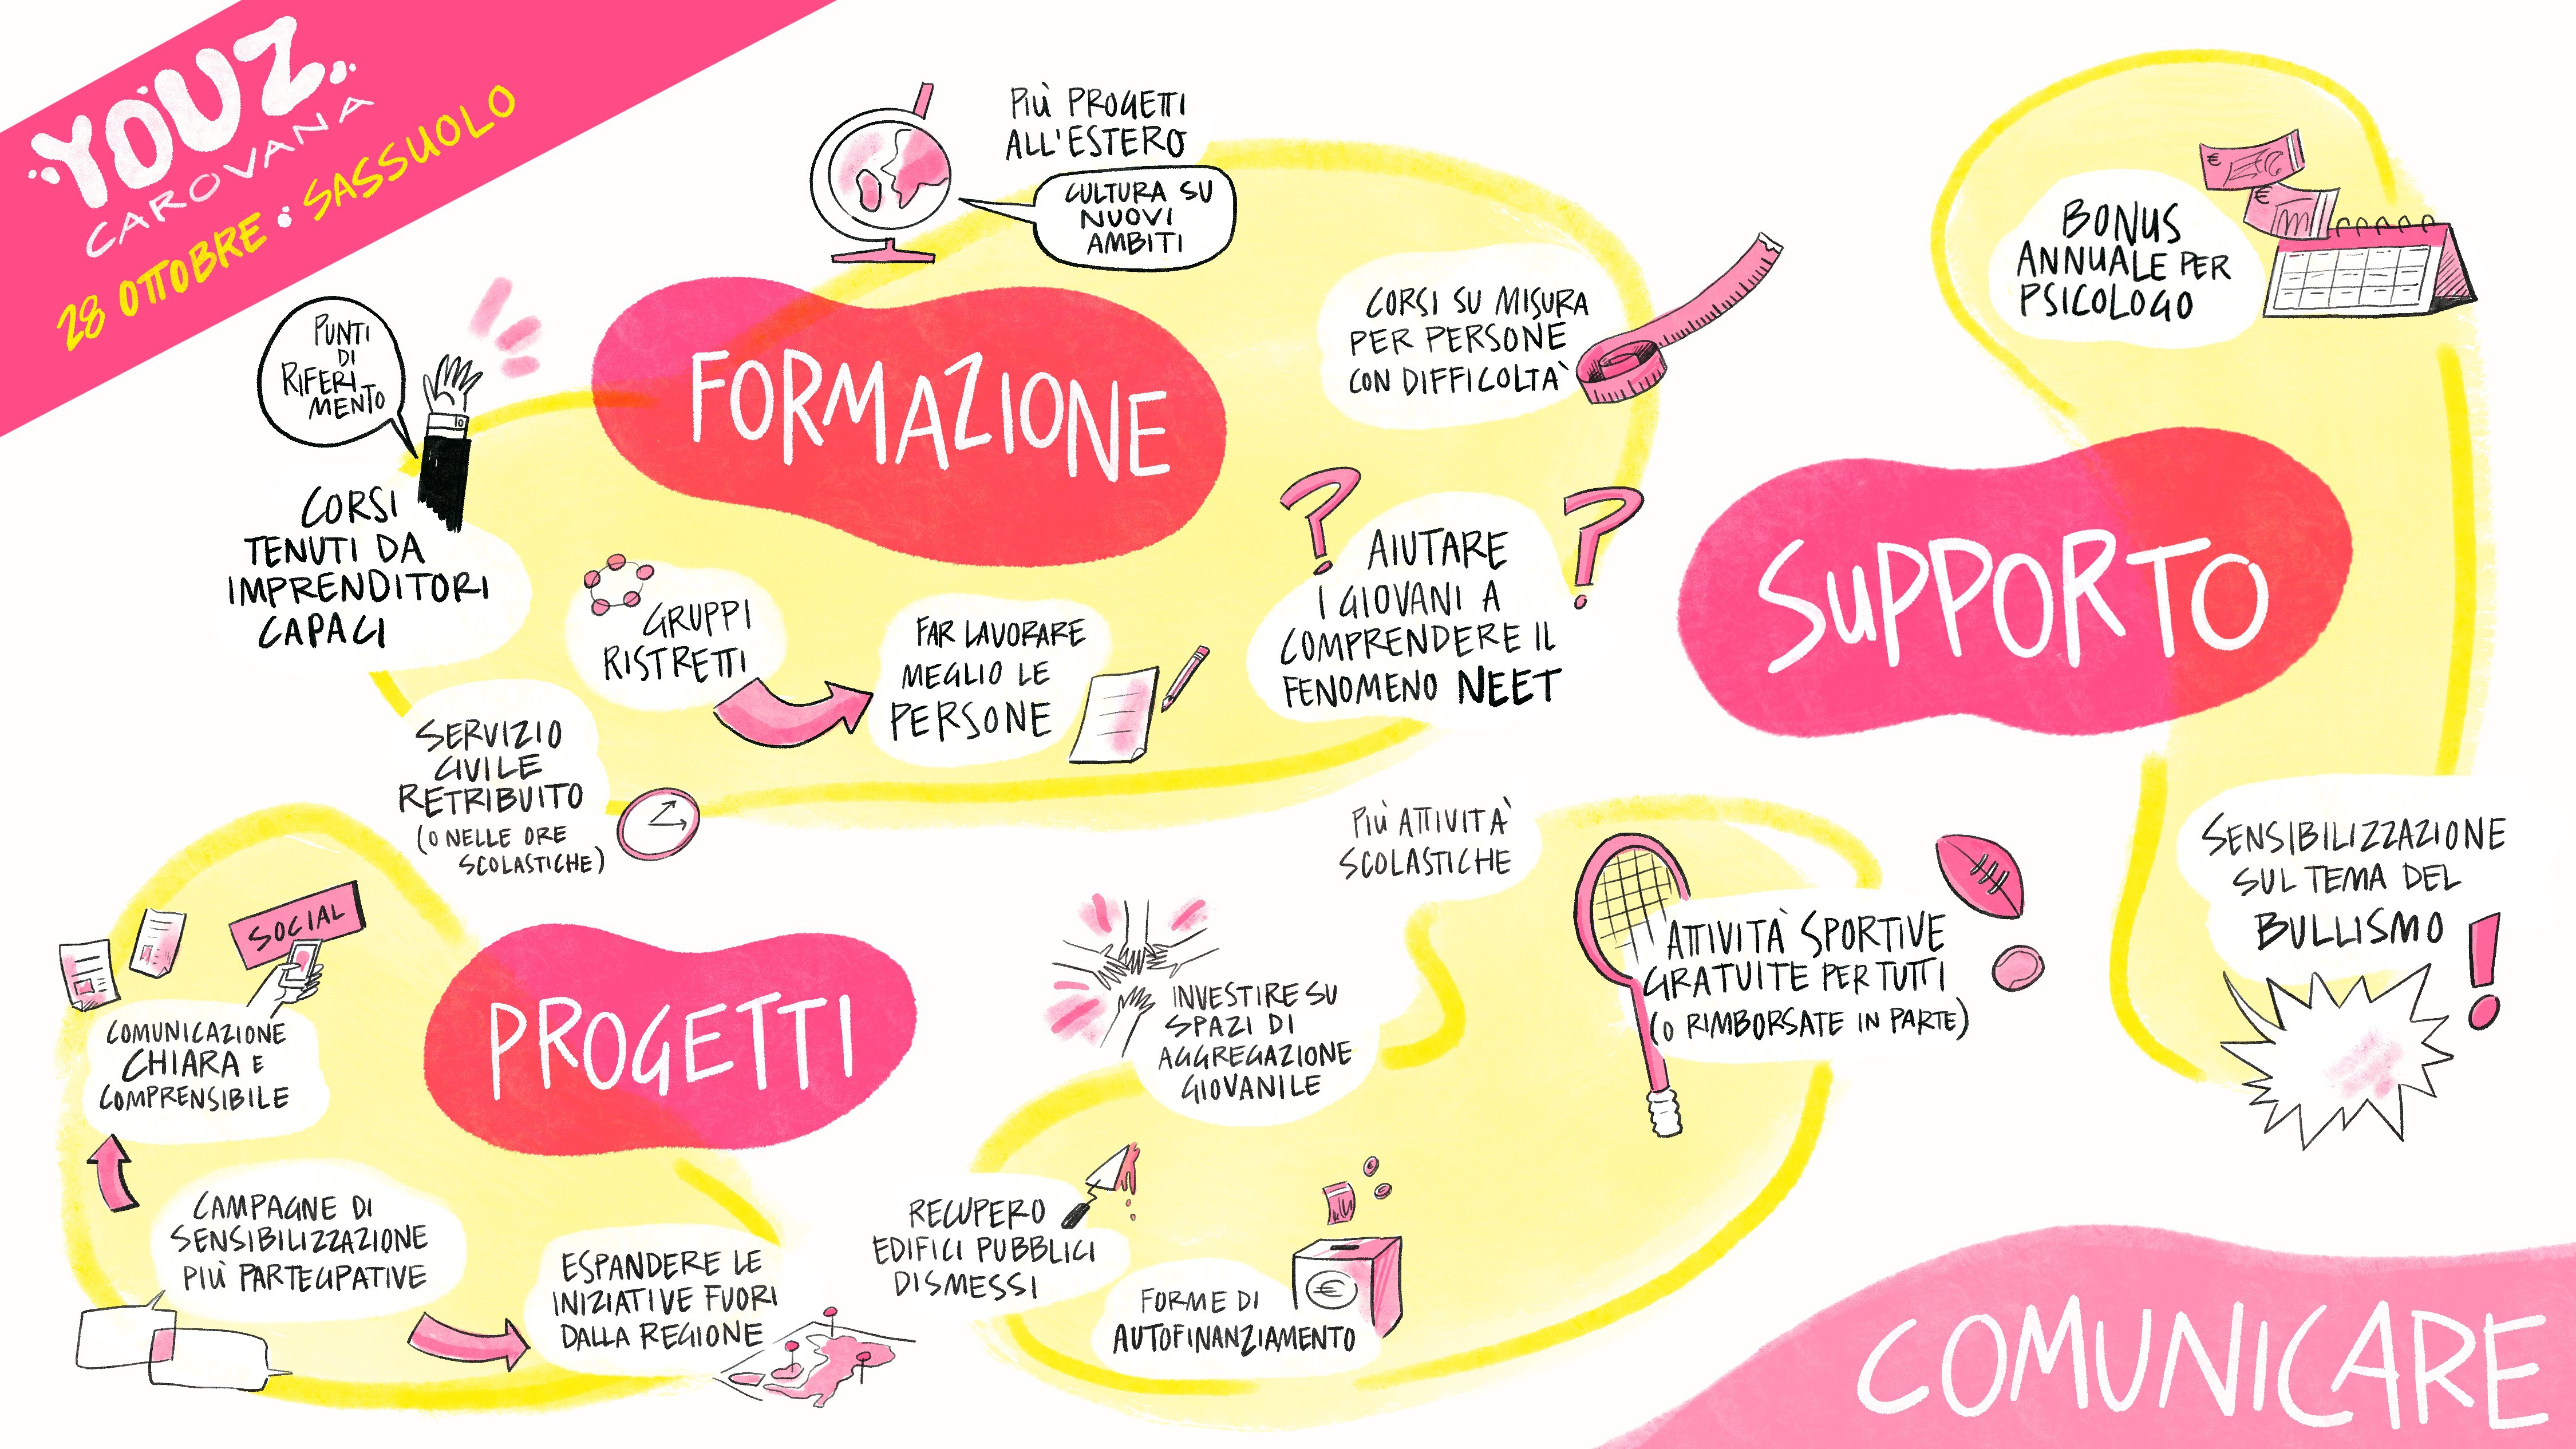 YOUZ
CAROVANA
28 OTTOBRE : SASSUOLO
PIÙ PROGETTI
ALL'ESTERO
CULTURA SU
NUOVI
AMBITI
PUNTI
DI
RIFERI
MENTO
FORMAZIONE
CORSI SU MISURA
PER PERSONE
CON DIFFICOLTA'
CORSI
TENUTI DA
IMPRENDITORI
CAPACI
GRUPPI
RISTRETTI
FAR LAVORARE
MEGLIO LE
PERSONE
?
?
AIUTARE
I GIOVANI A
COMPRENDERE IL
FENOMENO NEET
SERVIZIO
CIVILE
RETRIBUITO
(O NELLE ORE
SCOLASTICHE)
€
€
BONUS
ANNUALE PER
PSICOLOGO
SUPPORTO
SENSIBILIZZAZIONE
SUL TEMA DEL
BULLISMO
!
SOCIAL
COMUNICAZIONE
CHIARA E
COMPRENSIBILE
PROGETTI
CAMPAGNE DI
SENSIBILIZZAZIONE
PIÙ PARTECIPATIVE
ESPANDERE LE
INIZIATIVE FUORI
DALLA REGIONE
PIÙ ATTIVITA'
SCOLASTICHE
INVESTIRE SU
SPAZI DI
AGGREGAZIONE
GIOVANILE
ATTIVITÀ SPORTIVE
GRATUITE PER TUTTI
(O RIMBORSATE IN PARTE)
RECUPERO
EDIFICI PUBBLICI
DISMESSI
FORME DI
AUTOFINANZIAMENTO
€
COMUNICARE